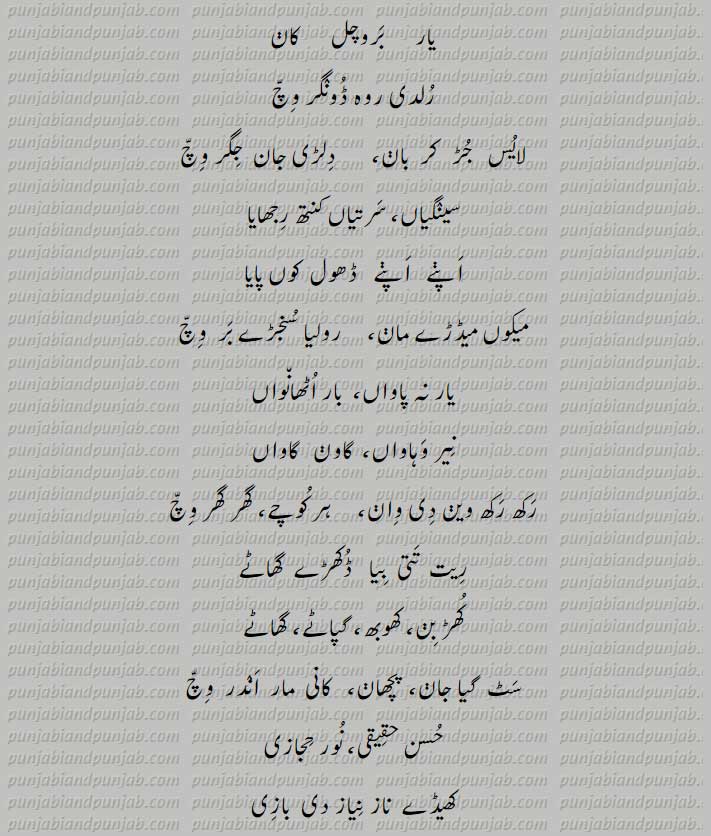 یار بَروچل کاݨ
رُلدی روہ ڈُونگر وِچّ
لائُیس جُڑ کر باݨ، دِلڑی جان جِگر وِچّ
سینگیاں، سَر تیاں کنتھ رِجھایا
اَپݨے اَپݨے ڈھول کوں پایا
میکوں میڈڑے ماݨ، رولیا سُنجڑے بَر وِچّ
یار نہ پاواں، بار اُٹھانّواں
نِیر وَہاواں، گاوݨ گاواں
رَکھ رَکھ ویݨ دِی وِاݨ، ہر کُوچے، گھر گھر وِچّ
رِیت تَتی بِیا ڈُکھڑے گھاٹے
کُھڑ بِݨ، کھوبھ، گپاٹے، گھاٹے
سَٹ گیا جاݨ، پچھاݨ، کانی مار اَندر وِچّ
حُسن حقِیقی، نُور حِجازی
کھیڈے ناز نِیاز دی بازِی
punjabiandpunjab.com